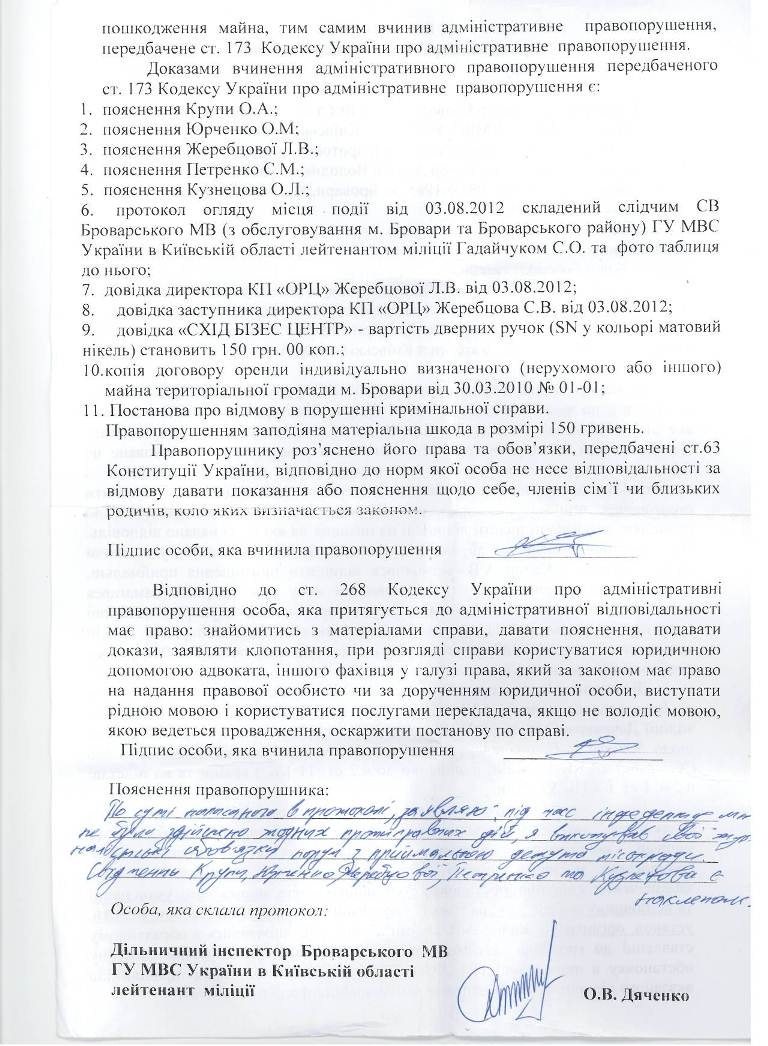 пошкодження майна, тим самим вчинив адміністративне правопорушення,
передбачене ст. 173 Кодексу України про адміністративне правопорушення.
Доказами вчинення адміністративного правопорушення передбаченого
ст. 173 Кодексу України про адміністративне правопорушення є:
1. пояснення Крупи О.А.;
2. пояснення Юрченко О.М;
3. пояснення Жеребцової Л.В.;
4. пояснення Петренко С.М.;
5. пояснення Кузнецова О.Л.;
6. протокол огляду місця події від 03.08.2012 складений слідчим СВ
Броварського МВ (з обслуговування м. Бровари та Броварського району) ГУ МВС
України в Київській області лейтенантом міліції Гадайчуком С.О. та фото таблиця
до нього;
7. довідка директора КП «ОРЦ» Жеребцової Л.В. від 03.08.2012;
8. довідка заступника директора КП «ОРЦ» Жеребцова С.В. від 03.08.2012;
9. довідка «СХІД БІЗЕС ЦЕНТР» - вартість дверних ручок (SN у кольорі матовий
нікель) становить 150 грн. 00 коп.;
10.копія договору оренди індивідуально визначеного (нерухомого або іншого)
майна територіальної громади м. Бровари від 30.03.2010 № 01-01;
11. Постанова про відмову в порушенні кримінальної справи.
Правопорушенням заподіяна матеріальна шкода в розмірі 150 гривень.
Правопорушнику роз’яснено його права та обов’язки, передбачені ст.63
Конституції України, відповідно до норм якої особа не несе відповідальності за
відмову давати показання або пояснення щодо себе, членів сім´ї чи близьких
родичів, коло яких визначається законом.
Підпис особи, яка вчинила правопорушення
Відповідно до ст. 268 Кодексу України про адміністративні
правопорушення особа, яка притягується до адміністративної відповідальності
має право: знайомитись з матеріалами справи, давати пояснення, подавати
докази, заявляти клопотання, при розгляді справи користуватися юридичною
допомогою адвоката, іншого фахівця у галузі права, який за законом має право
на надання правової особисто чи за дорученням юридичної особи, виступати
рідною мовою і користуватися послугами перекладача, якщо не володіє мовою,
якою ведеться провадження, оскаржити постанову по справі.
Підпис особи, яка вчинила правопорушення
Пояснення правопорушника:
По суті написаного в протоколі, заявляю: під час інциденту мн
не було здійснено жодних протиправних дій, я виконував свої журна
лістські обов'язки поруч з приймальною депутата міськради.
Свідчення Крупи, Юрченко, Жеребцової, Петренко та Кузнецова є
наклепом.
Особа, яка склала протокол:
Дільничний інспектор Броварського МВ
ГУ МВС України в Київській області
лейтенант міліції
О.В. Дяченко